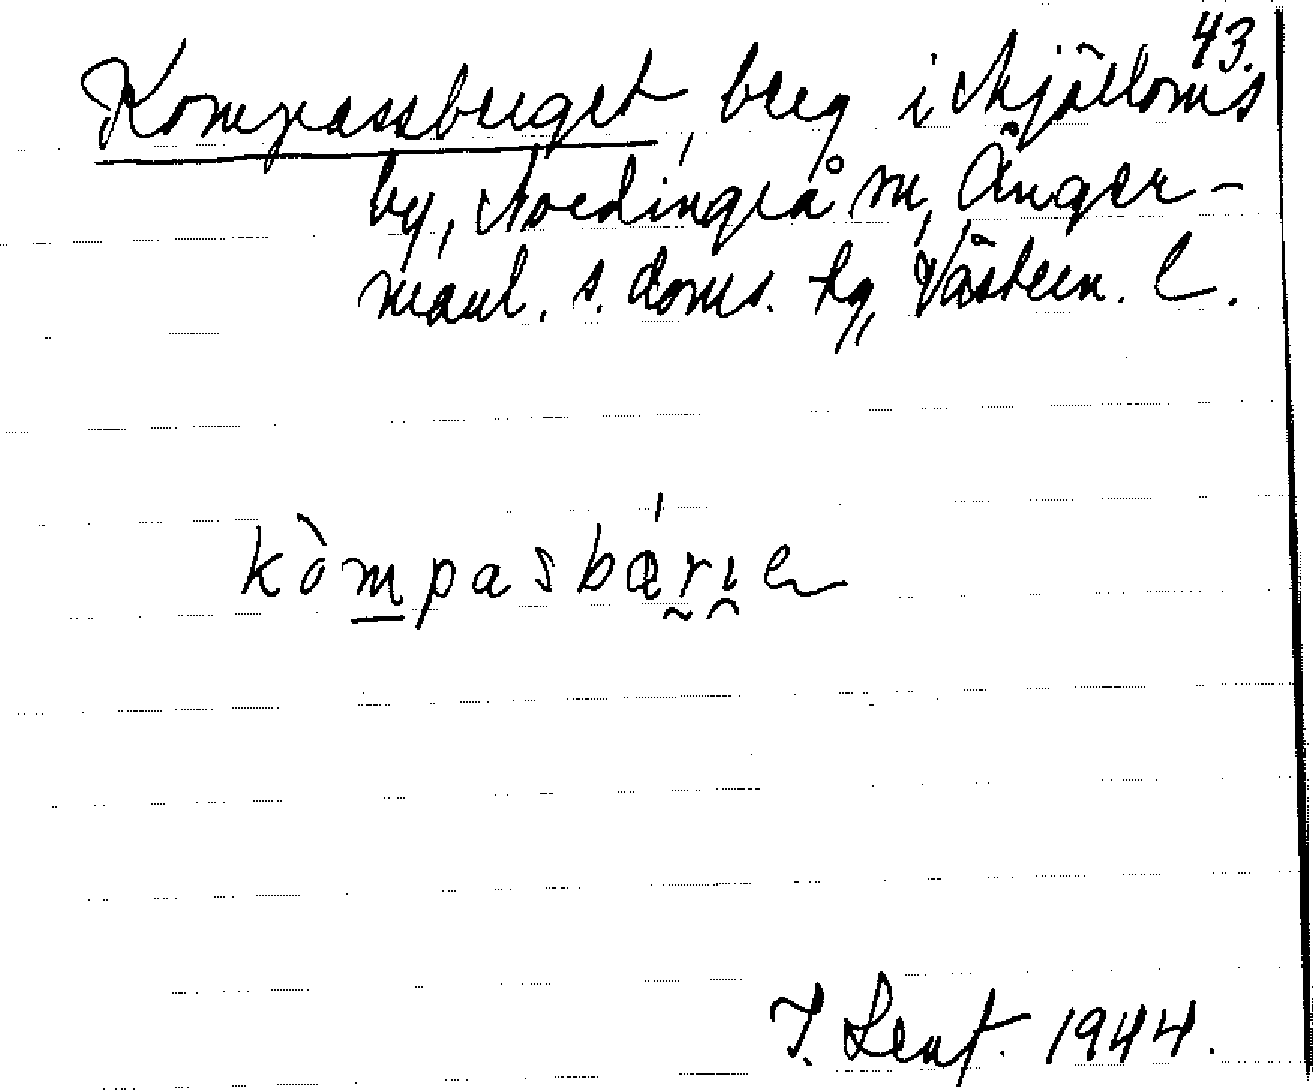 43.
Kompassberget, berg i Mjälloms
by, Nordingrå sn, Ånger-
manl. s. doms. tg, Västern. l.
kòmpasbárıe
1944.